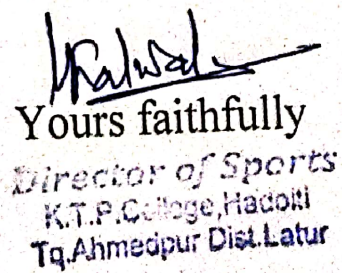 Yours faithfully
Director of Sports
K.T.P.College,Hadolti
Tq.Ahmedpur Dist.Latur